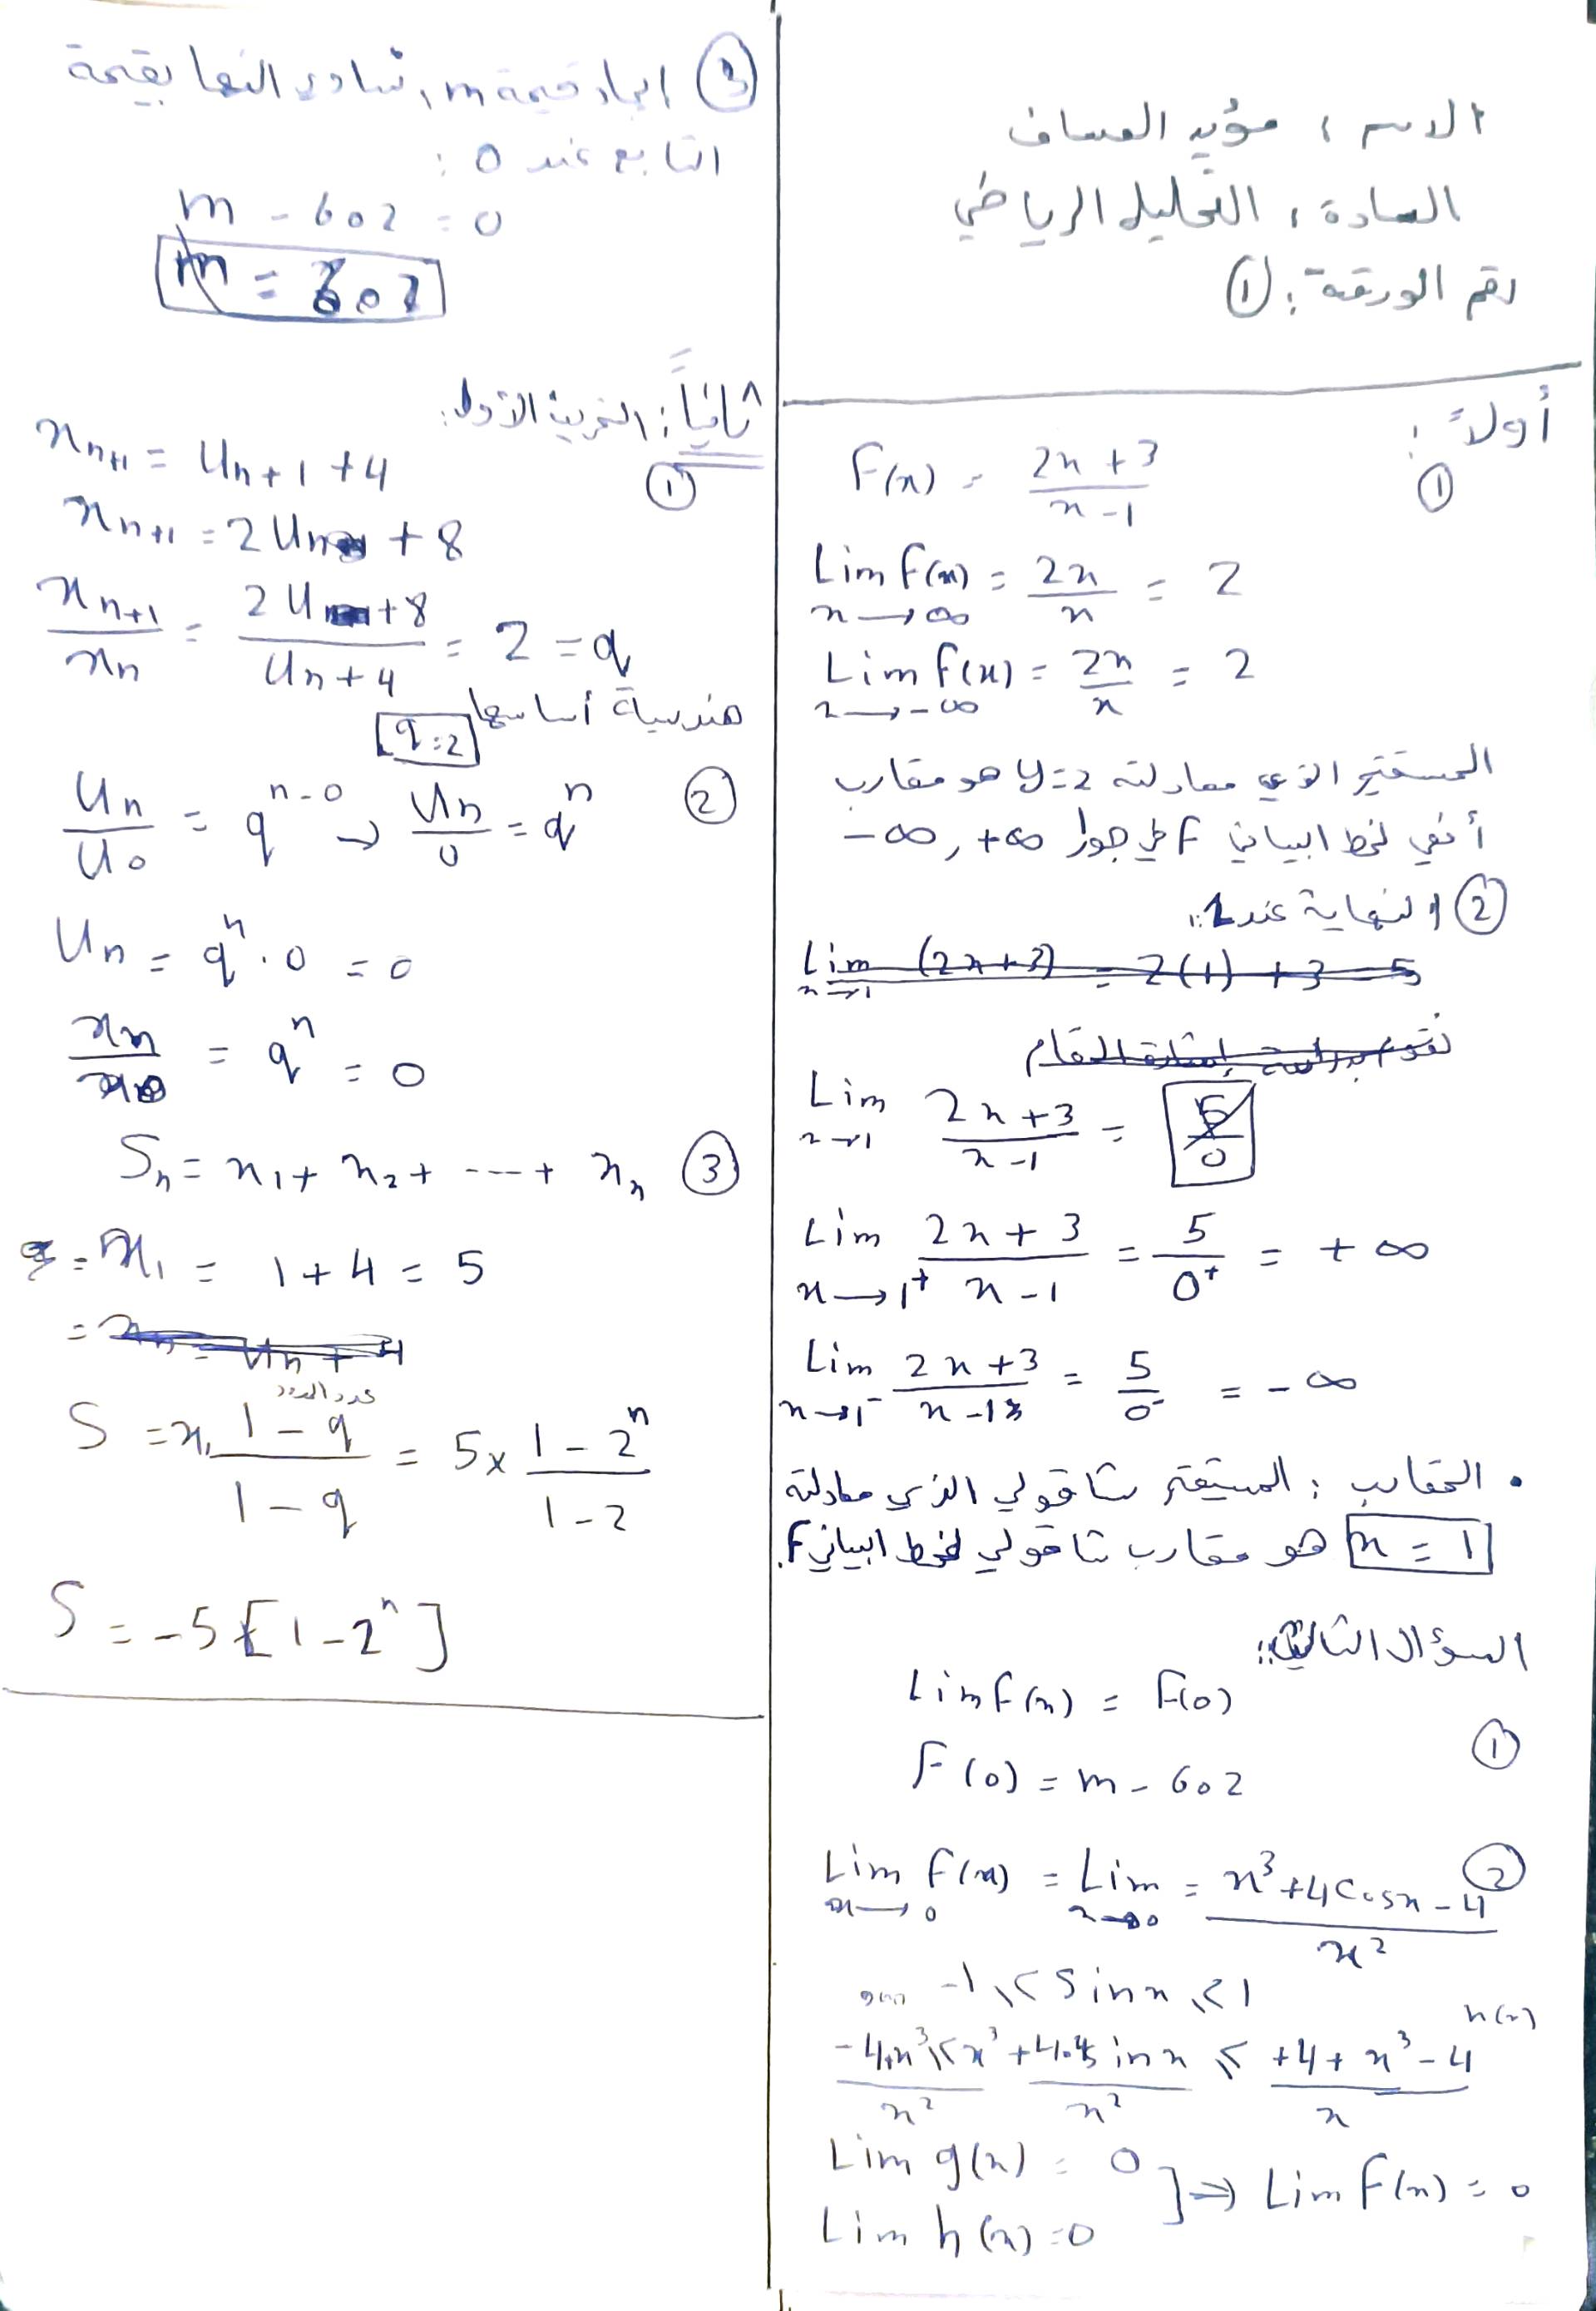 الاسم : مؤيد العساف
المادة : التحليل الرياضي
رقم الورقة : ①
أولاً :
①
F(x) = (2x + 3)/(x - 1)
Lim F(x) = 2x/x = 2
x → ∞
Lim F(x) = 2x/x = 2
x → -∞
المستقيم الذي معادلته y=2 هو مقارب
أفقي لخط البياني F في جوار +∞ , -∞
② النهاية عند 1 :
Lim (2x+3) = 2(1) + 3 = 5
x→1
نقوم بدراسة إشارة المقام
Lim (2x+3)/(x-1) = 5/0
x→1
Lim (2x+3)/(x-1) = 5/0⁺ = +∞
x→1⁺
Lim (2x+3)/(x-1) = 5/0⁻ = -∞
x→1⁻
• المقارب : المستقيم شاقولي الذي معادلته
x = 1 هو مقارب شاقولي لخط البياني F.
السؤال الثاني :
Lim F(x) = F(0)
①
F(0) = m - 602
②
Lim F(x) = Lim = (x³ + 4cosx - 4)/x²
x→0 x→0
-1 ≤ Sin x ≤ 1
h(x)
Lim g(x) = 0
Lim h(x) = 0 ] ⇒ Lim F(x) = 0
③ ايجاد قيمة m , تساوي النها بقيمة
التابع عند 0 :
m - 602 = 0
m = 602
ثانياً : التمرين الأول :
①
xn+1 = Un+1 + 4
xn+1 = 2Un + 8
xn+1/xn = (2Un + 8)/(Un + 4) = 2 = q
هندسية أساسها q = 2
②
Un/U0 = qⁿ⁻⁰ → Un/0 = qⁿ
Un = qⁿ · 0 = 0
xn/x0 = qⁿ = 0
③
Sn = x1 + x2 + ---- + xn
= x1 = 1 + 4 = 5
= xn = Un + 4
عدد الحدود
S = x1 (1 - q)/(1 - q) = 5 × (1 - 2ⁿ)/(1 - 2)
S = -5 [1 - 2ⁿ]